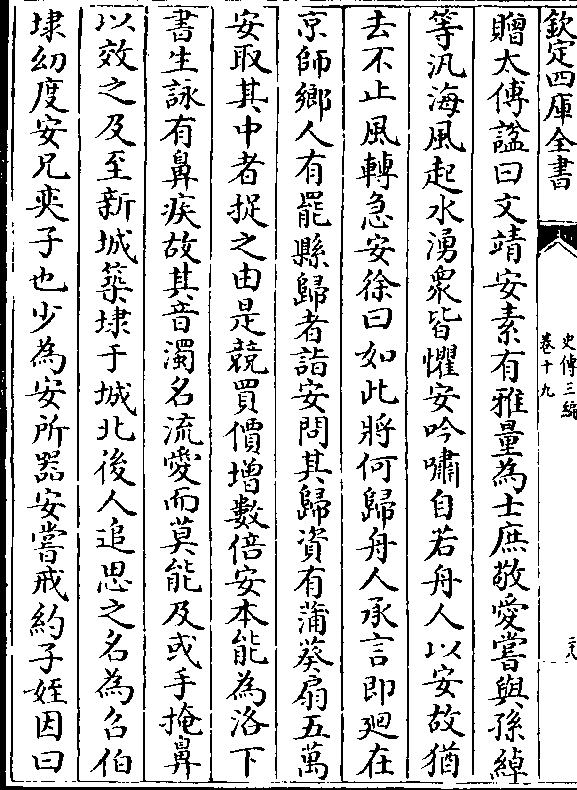 欽定四庫全書
史傳三編
卷十九
二十八
贈太傅諡曰文靖安素有雅量為士庶敬愛嘗與孫綽
等汎海風起水湧衆皆懼安吟嘯自若舟人以安故猶
去不止風轉急安徐曰如此將何歸舟人承言即廻在
京師鄉人有罷縣歸者詣安問其歸資有蒲葵扇五萬
安取其中者捉之由是競買價增數倍安本能為洛下
書生詠有鼻疾故其音濁名流愛而莫能及或手掩鼻
以效之及至新城築埭于城北後人追思之名為召伯
埭幼度安兄奕子也少為安所器安嘗戒約子姪因曰